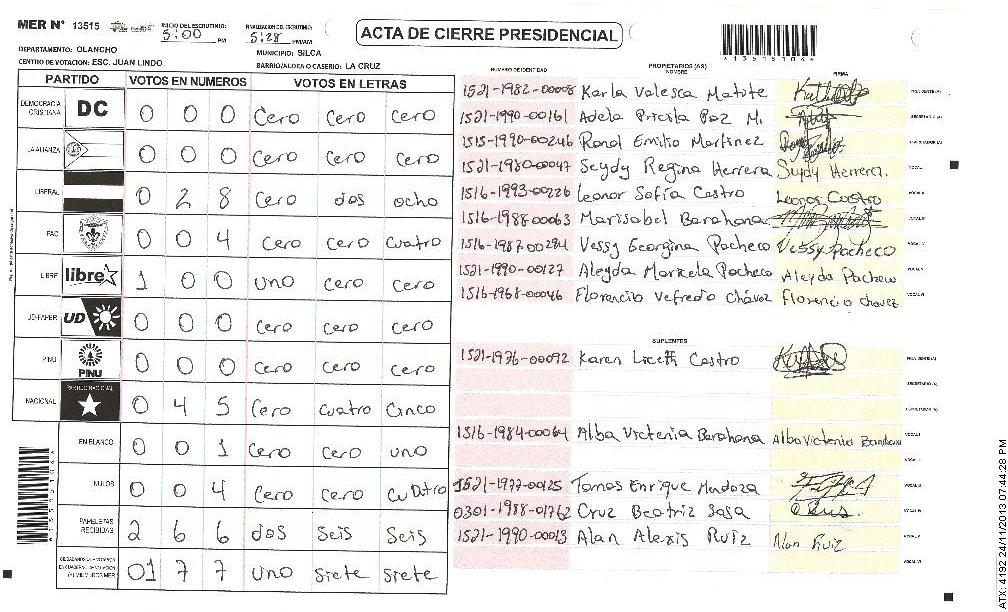 MER N° 13515 INICIO DEL ESCRUTINIO: 5:00 PM FINALIZACION DEL ESCRUTINIO: 5:28 PM/AM
ACTA DE CIERRE PRESIDENCIAL
DEPARTAMENTO: OLANCHO MUNICIPIO: SILCA
CENTRO DE VOTACION: ESC. JUAN LINDO BARRIO/ALDEA O CASERIO: LA CRUZ
PARTIDO VOTOS EN NUMEROS VOTOS EN LETRAS
DEMOCRACIA CRISTIANA DC 0 0 0 Cero Cero Cero
LA ALIANZA 0 0 0 Cero Cero Cero
LIBERAL 0 2 8 Cero dos ocho
PAC 0 0 4 Cero Cero Cuatro
LIBRE libre 1 0 0 uno Cero Cero
UD-FAPER UD 0 0 0 Cero Cero Cero
PINU PINU 0 0 0 Cero Cero Cero
NACIONAL PARTIDO NACIONAL 0 4 5 Cero Cuatro Cinco
EN BLANCO 0 0 1 Cero Cero uno
NULOS 0 0 4 Cero Cero Cuatro
PAPELETAS RECIBIDAS 2 6 6 dos Seis Seis
01 7 7 uno siete siete
NUMERO DE IDENTIDAD PROPIETARIOS (AS) NOMBRE FIRMA
1521-1982-00008 Karla Valesca Matite PRESIDENTE (A)
1521-1990-00161 Adela Pricila Paz M. SECRETARIO (A)
1515-1990-00246 Ronal Emilio Martinez ESCRUTADOR (A)
1521-1980-00047 Seydy Regina Herrera Suydy Herrera. VOCAL I
1516-1993-00226 Leonor Sofía Castro Leonor Castro VOCAL II
1516-1988-00063 Marisabel Barahona VOCAL III
1516-1987-00284 Vessy Georgina Pacheco Vessy Pacheco VOCAL IV
1521-1990-00127 Aleyda Maricela Pacheco Aleyda Pacheco VOCAL V
1516-1968-00046 Florencio Vefredo Chávez Florencio chavez VOCAL VI
SUPLENTES
1521-1976-00092 Karen Licett Castro PRESIDENTE (A)
SECRETARIO (A)
ESCRUTADOR (A)
1516-1984-00064 Alba Victoria Barahona Alba Victoria Barahona VOCAL I
VOCAL II
1521-1977-00125 Tomas Enrique Mendoza VOCAL III
0301-1988-01762 Cruz Beatriz Sosa VOCAL IV
1521-1990-00013 Alan Alexis Ruiz Alan Ruiz VOCAL V
VOCAL VI
ATX: 4192 24/11/2013 07:44:28 PM